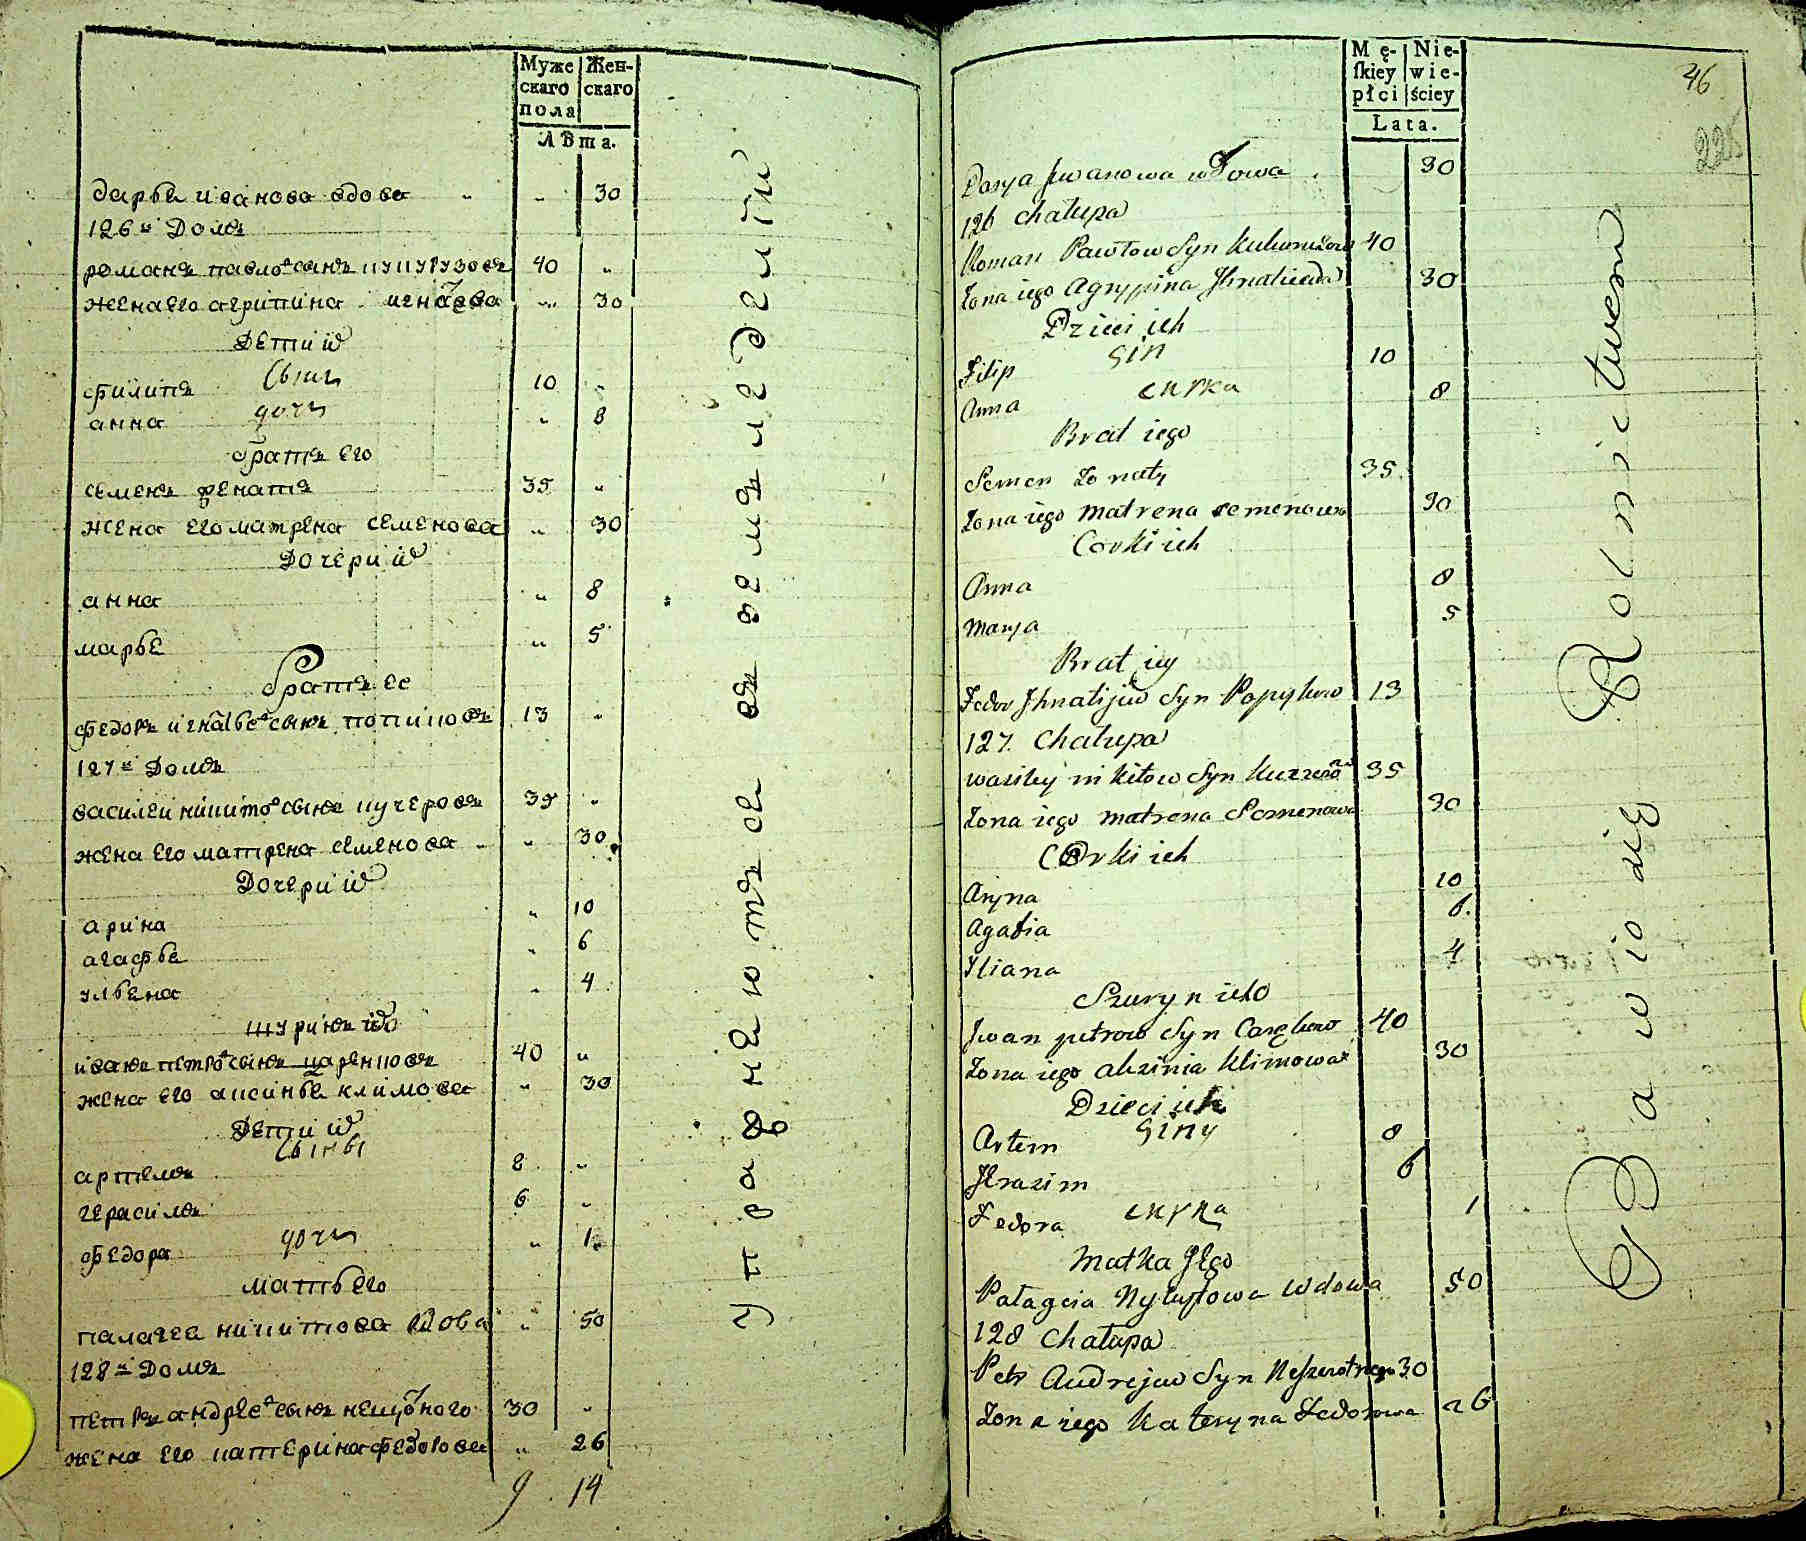 Муже скаго пола
Жен- скаго
Лѣта.
дарья иванова вдова „ „ 30
126й Домъ
романъ павловъ сынъ кукурузовъ 40 „
жена его агрипина игнатева „ 30
Дети их
Сынъ
филипъ 10 „
дочь
анна „ 8
братъ его
семенъ женатъ 35 „
жена его матрена семенова „ 30
Дочери их
анна „ 8
марья „ 5
братъ ее
федоръ игнатьевъ сынъ 13 „
127й Домъ
василеи никитовъ сынъ кучеровъ 35 „
жена его матрена семенова „ „ 30
Дочери их
арина „ 10
агафья „ 6
ульяна „ 4
шуринъ его
иванъ петровъ сынъ царенковъ 40 „
жена его аксинья климова „ 30
Дети их
Сыны
артемъ 8 „
герасимъ 6 „
дочь
федора „ 1
мать его
палагея никитова вдова „ 50
128й Домъ
петръ андреевъ сынъ 30 „
жена его катерина федорова „ 26
9 . 14
упражняются въ земледелии
Mę- skiey płci
Nie- wie- ściey
Lata.
46
225
Darya Jwanowa wdowa . 30
126 chałupa
Roman Pawłow Syn 40
Żona iego Agrypina Jhnatiewa 30
Dzieci ich
Sin
Filip 10
curka
Anna 8
Brat iego
Semen Żonaty 35.
Żona iego matrena semenowa 30
Corki ich
Anna 8
Marya 5
Brat iey
Fedor Jhnatijew Syn 13
127. Chałupa
wasiley nikitow Syn 35
Żona iego matrena Semenowa 30
Corki ich
Aryna 10
Agafia 6.
Uliana 4
Szuryn ieho
Jwan petrow Syn 40
Żona iego aksinia Klimowa 30
Dzieci ich
Siny
Artem 8
Jerasim 6
curka
Fedora 1
Matka Jego
Pałageia Nykytowa wdowa 50
128 Chałupa
Petr Andrejew Syn 30
Żona iego Kateryna Fedorowa 26
Bawio się Rolnictwem